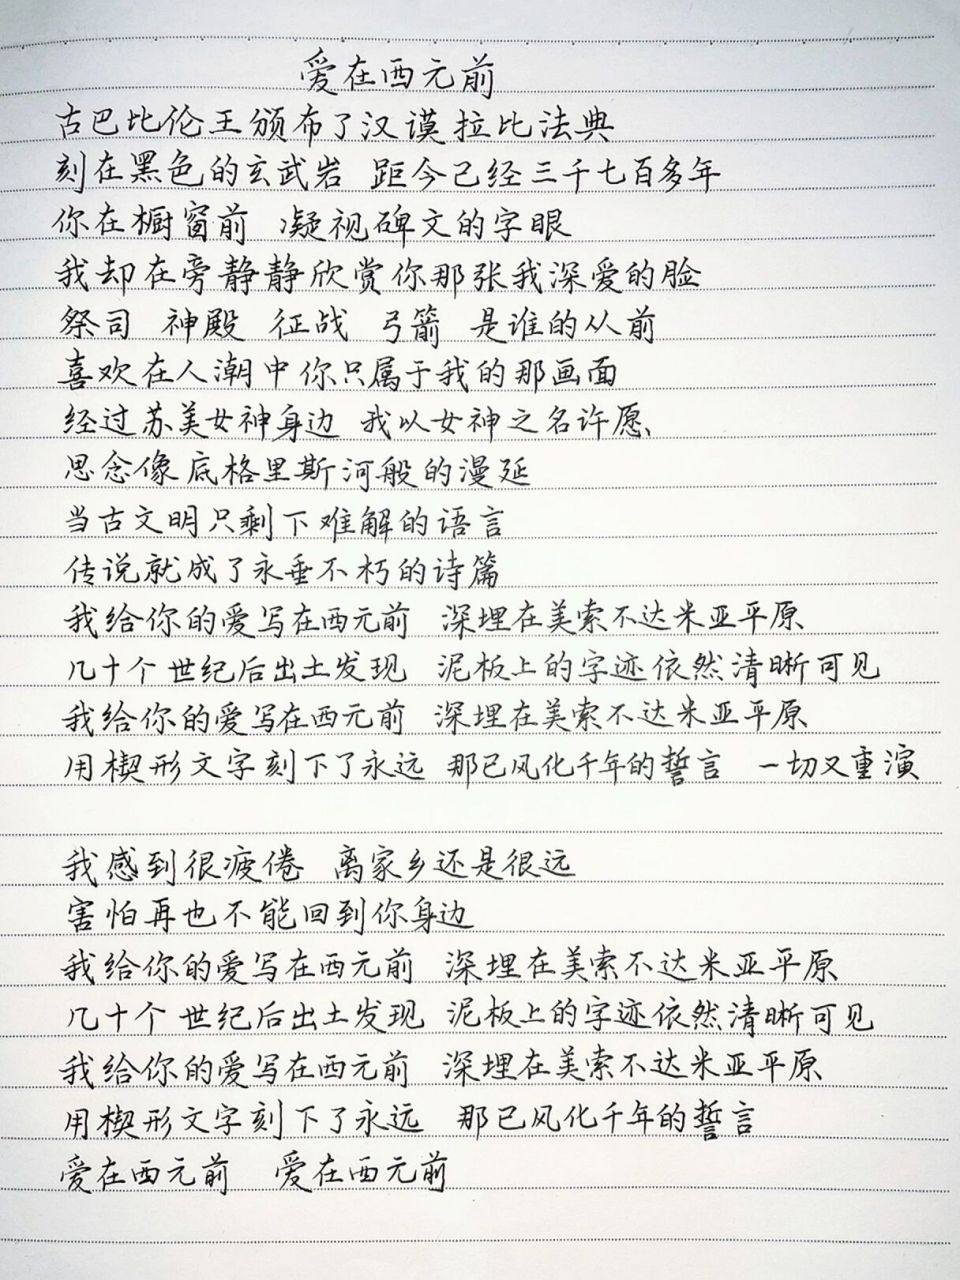 爱在西元前
古巴比伦王颁布了汉谟拉比法典
刻在黑色的玄武岩 距今已经三千七百多年
你在橱窗前 凝视碑文的字眼
我却在旁静静欣赏你那张我深爱的脸
祭司 神殿 征战 弓箭 是谁的从前
喜欢在人潮中你只属于我的那画面
经过苏美女神身边 我以女神之名许愿
思念像底格里斯河般的漫延
当古文明只剩下难解的语言
传说就成了永垂不朽的诗篇
我给你的爱写在西元前 深埋在美索不达米亚平原
几十个世纪后出土发现 泥板上的字迹依然清晰可见
我给你的爱写在西元前 深埋在美索不达米亚平原
用楔形文字刻下了永远 那已风化千年的誓言 一切又重演
我感到很疲倦 离家乡还是很远
害怕再也不能回到你身边
我给你的爱写在西元前 深埋在美索不达米亚平原
几十个世纪后出土发现 泥板上的字迹依然清晰可见
我给你的爱写在西元前 深埋在美索不达米亚平原
用楔形文字刻下了永远 那已风化千年的誓言
爱在西元前 爱在西元前